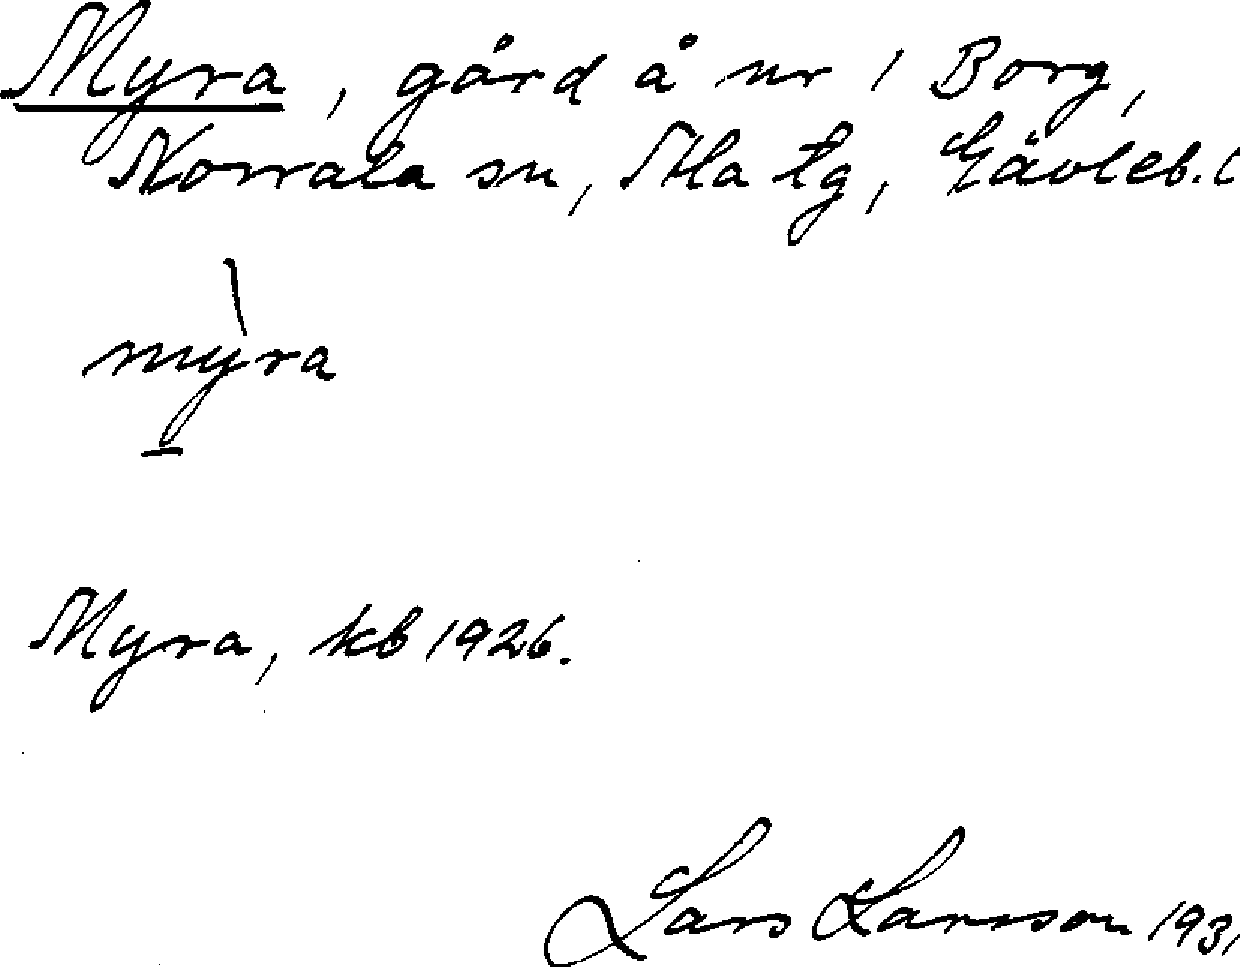 Myra, gård å nr 1 Borg,
Norrala sn, Ala tg, Gävleb. l
mỳra
Myra, kb 1926.
Lars Larsson 1931